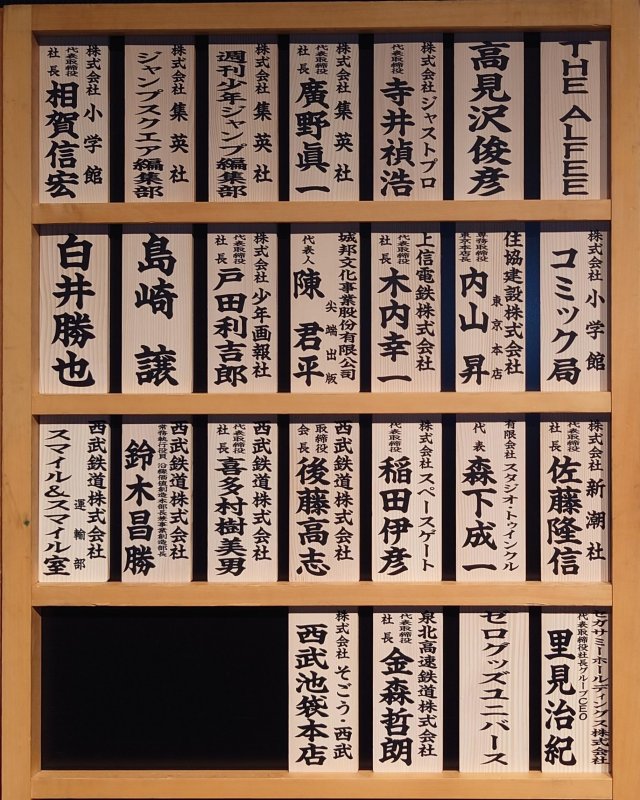 THE ALFEE
高見沢俊彦
株式会社ジャストプロ
代表取締役
寺井禎浩
株式会社 集英社
代表取締役
社長
廣野眞一
株式会社 集英社
週刊少年ジャンプ編集部
株式会社 集英社
ジャンプスクエア編集部
株式会社 小学館
代表取締役
社長
相賀信宏
株式会社 小学館
コミック局
住協建設株式会社
東京本店
専務取締役
東京本店長
内山 昇
上信電鉄株式会社
代表取締役
社長
木内幸一
城邦文化事業股份有限公司
尖端出版
代表人
陳 君平
株式会社 少年画報社
代表取締役
社長
戸田利吉郎
島崎 譲
白井勝也
株式会社 新潮社
代表取締役
社長
佐藤隆信
有限会社 スタジオ・トゥインクル
代表
森下成一
株式会社 スペースゲート
代表取締役
稲田伊彦
西武鉄道株式会社
取締役
会長
後藤高志
西武鉄道株式会社
代表取締役
社長
喜多村樹美男
西武鉄道株式会社
常務執行役員 沿線価値創造本部長兼事業創造部長
鈴木昌勝
西武鉄道株式会社
運輸部
スマイル&スマイル室
セガサミーホールディングス株式会社
代表取締役社長グループCEO
里見治紀
ゼログッズユニバース
泉北高速鉄道株式会社
代表取締役
社長
金森哲朗
株式会社 そごう・西武
西武池袋本店